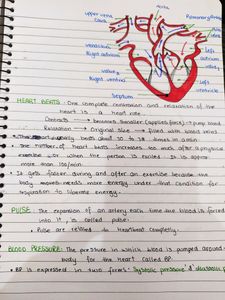 Aorta
upper vena
cava
Pulmonary
Right atrium
left
atrium
valve
valves
Right ventricle
Left
ventricle
Septum
HEART BEATS : One complete contraction and relaxation of
the heart is a heart rate.
Contracts → becomes smaller (applies force) → pump blood
Relaxation → Original size → filled with blood veins
heart beats about 60 to times in a min
The number of heart beats increases too much after a physical
exercise or when the person is excited. It is approx
more than 100/min
It gets faster during and after an exercise because the
body needs more energy under that condition for
respiration to liberate energy.
PULSE : The expansion of an artery each time due blood is forced
into it, is called pulse.
Pulse are related to heartbeat completely.
BLOOD PRESSURE : The pressure in which blood is pumped around
body for the heart called BP.
BP is expressed in two forms "Systolic pressure" &